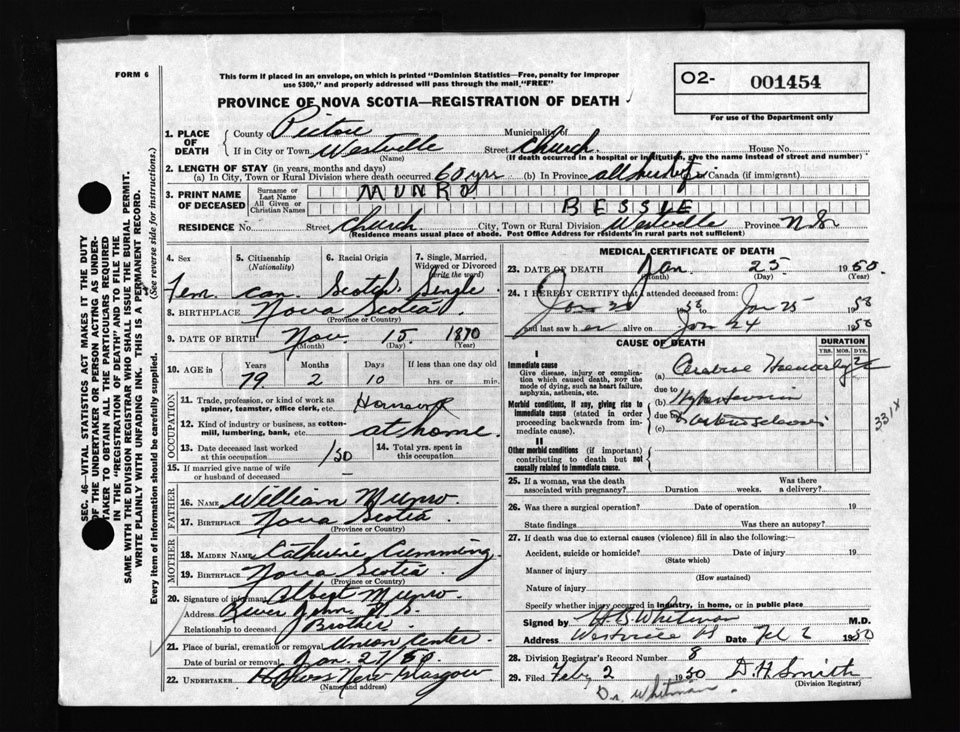 FORM 6
This form if placed in an envelope, on which is printed "Dominion Statistics—Free, penalty for improper
use $300," and properly addressed will pass through the mail "FREE"
O2- 001454
For use of the Department only
PROVINCE OF NOVA SCOTIA—REGISTRATION OF DEATH
1. PLACE OF DEATH
County of Pictou Municipality of
If in City or Town Westville Street Church House No.
(Name) (If death occurred in a hospital or institution, give the name instead of street and number)
2. LENGTH OF STAY (in years, months and days)
(a) In City, Town or Rural Division where death occurred 60 yrs (b) In Province all her life Canada (if immigrant)
3. PRINT NAME OF DECEASED
Surname or Last Name MUNRO
All Given or Christian Names BESSIE
RESIDENCE No. Street Church City, Town or Rural Division Westville Province N.S.
(Residence means usual place of abode. Post Office Address for residents in rural parts not sufficient)
4. Sex 5. Citizenship (Nationality) 6. Racial Origin 7. Single, Married, Widowed or Divorced (write the word)
Fem. Can. Scotch Single
8. BIRTHPLACE Nova Scotia
(Province or Country)
9. DATE OF BIRTH Nov. 15 1870
(Month) (Day) (Year)
10. AGE in Years Months Days If less than one day old
79 2 10 hrs. or min.
OCCUPATION
11. Trade, profession or kind of work as spinner, teamster, office clerk, etc. Housework
12. Kind of industry or business, as cotton-mill, lumbering, bank, etc. at home
13. Date deceased last worked at this occupation 1/50 14. Total yrs. spent in this occupation
15. If married give name of wife or husband of deceased
FATHER
16. NAME William Munro
17. BIRTHPLACE Nova Scotia
(Province or Country)
MOTHER
18. MAIDEN NAME Catherine Cumming
19. BIRTHPLACE Nova Scotia
(Province or Country)
20. Signature of informant Albert Munro
Address River John N.S.
Relationship to deceased Brother
21. Place of burial, cremation or removal Union Center
Date of burial or removal Jan. 27/50
22. UNDERTAKER New Glasgow
(Name and address)
MEDICAL CERTIFICATE OF DEATH
23. DATE OF DEATH Jan. 25 1950
(Month) (Day) (Year)
24. I HEREBY CERTIFY that I attended deceased from:
Jan to Jan 25 19
and last saw h er alive on Jan 24 1950
CAUSE OF DEATH DURATION
YRS. MOS. DYS.
I
Immediate cause
Give disease, injury or complication which caused death, not the mode of dying, such as heart failure, asphyxia, asthenia, etc.
(a) Cerebral
due to
(b)
Morbid conditions, if any, giving rise to immediate cause (stated in order proceeding backwards from immediate cause).
due to
(c)
331X
II
Other morbid conditions (if important) contributing to death but not causally related to immediate cause.
25. If a woman, was the death associated with pregnancy? Duration weeks. Was there a delivery?
26. Was there a surgical operation? Date of operation 19
State findings Was there an autopsy?
27. If death was due to external causes (violence) fill in also the following:—
Accident, suicide or homicide? Date of injury 19
(State which)
Manner of injury
(How sustained)
Nature of injury
Specify whether injury occurred in industry, in home, or in public place
Signed by Whitman M.D.
Address Westville NS Date Feb 2 1950
28. Division Registrar's Record Number 8
29. Filed Feby 2 1950 D.H. Smith
(Division Registrar)
Dr. Whitman
SEC. 46—VITAL STATISTICS ACT MAKES IT THE DUTY
OF THE UNDERTAKER OR PERSON ACTING AS UNDER-
TAKER TO OBTAIN ALL THE PARTICULARS REQUIRED
IN THE "REGISTRATION OF DEATH" AND TO FILE THE
SAME WITH THE DIVISION REGISTRAR WHO SHALL ISSUE THE BURIAL PERMIT.
WRITE PLAINLY WITH UNFADING INK. THIS IS A PERMANENT RECORD.
Every item of information should be carefully supplied. (See reverse side for instructions.)